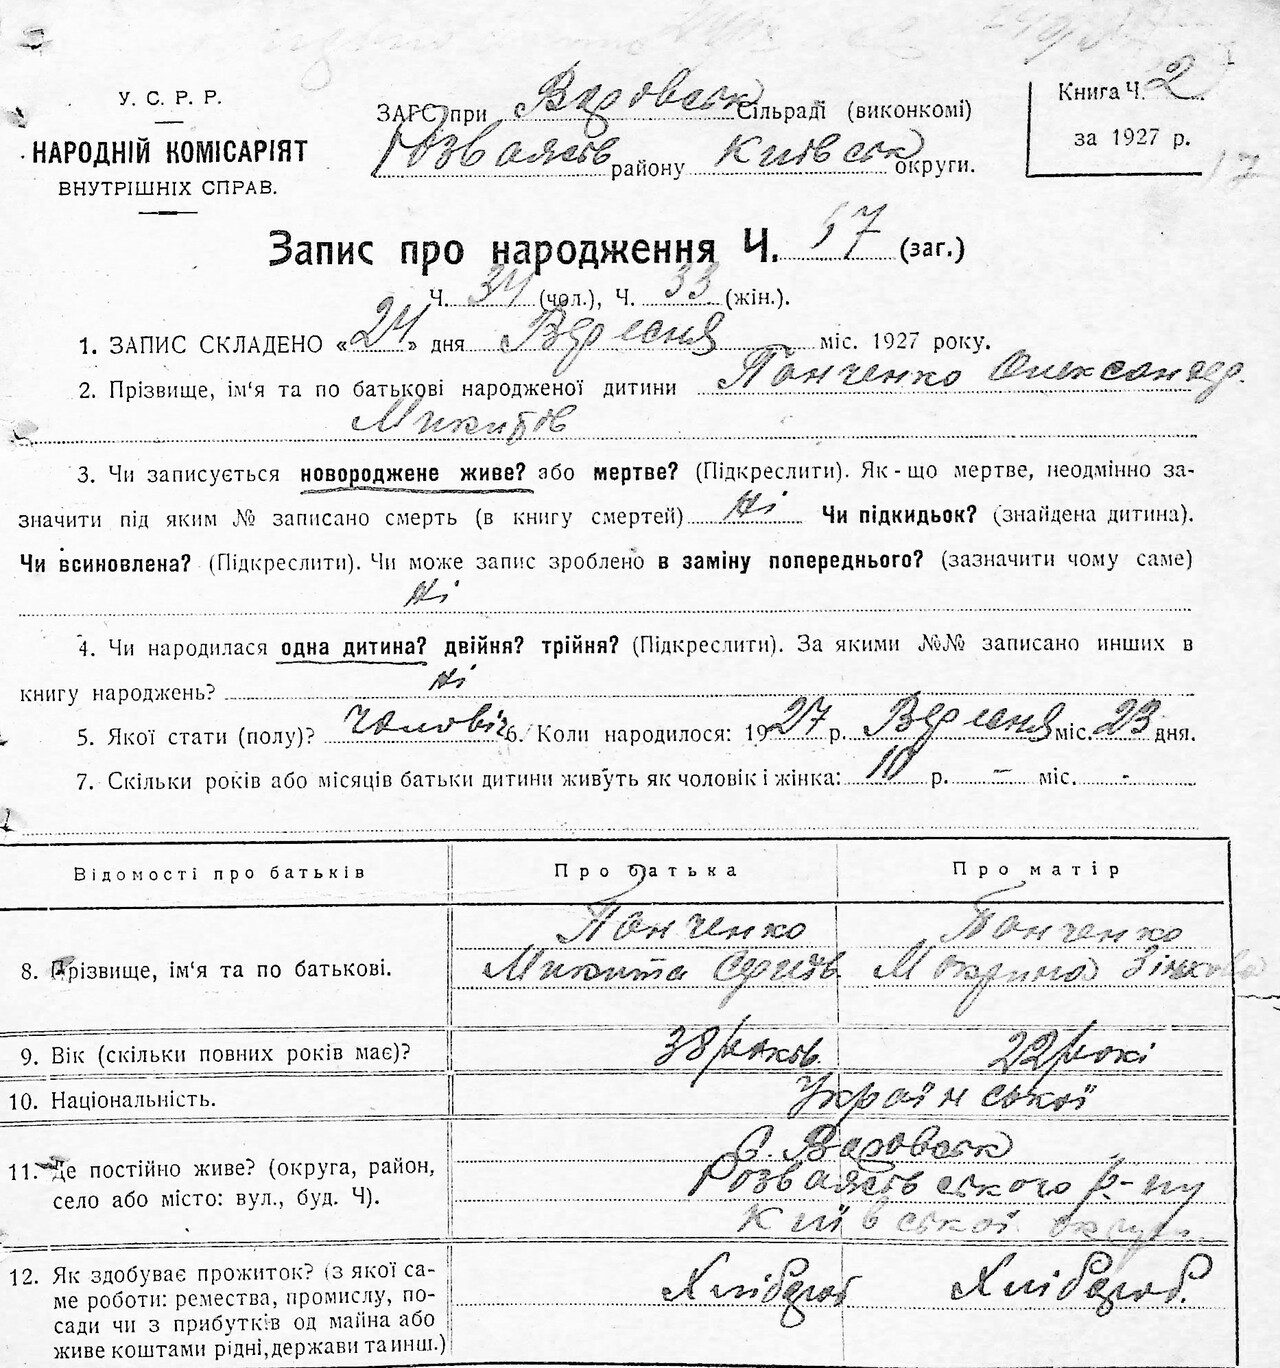 У. С. Р. Р.
НАРОДНІЙ КОМІСАРІЯТ
ВНУТРІШНІХ СПРАВ.
ЗАГС при с Варовськ Сільраді (виконкомі)
Розважів району Київськ округи.
Книга Ч. 2
за 1927 р.
17
Запис про народження Ч. 57 (заг.)
Ч. 34 (чол.), Ч. 33 (жін.).
1. ЗАПИС СКЛАДЕНО «24» дня Вересня міс. 1927 року.
2. Прізвище, ім'я та по батькові народженої дитини Панченко Олександр.
Микитов
3. Чи записується новороджене живе? або мертве? (Підкреслити). Як-що мертве, неодмінно за-
значити під яким № записано смерть (в книгу смертей) Ні Чи підкидьок? (знайдена дитина).
Чи всиновлена? (Підкреслити). Чи може запис зроблено в заміну попереднього? (зазначити чому саме)
Ні
4. Чи народилася одна дитина? двійня? трійня? (Підкреслити). За якими №№ записано инших в
книгу народжень? Ні
5. Якої стати (полу)? Чоловіч 6. Коли народилося: 1927 р. Вересня міс. 23 дня.
7. Скільки років або місяців батьки дитини живуть як чоловік і жінка: 10 р. – міс. -
Відомості про батьків Про батька Про матір
Панченко Панченко
8. Прізвище, ім'я та по батькові. Микита Мокрина Зінькова
9. Вік (скільки повних років має)? 38 років. 22 рокі
10. Національність. Української
С. Варовськ
11. Де постійно живе? (округа, район, Розважівського р-ну
село або місто: вул., буд. Ч). Київської округи
12. Як здобуває прожиток? (з якої са- Хлібороб Хлібороб.
ме роботи: ремества, промислу, по-
сади чи з прибутків од майна або
живе коштами рідні, держави та инш.)